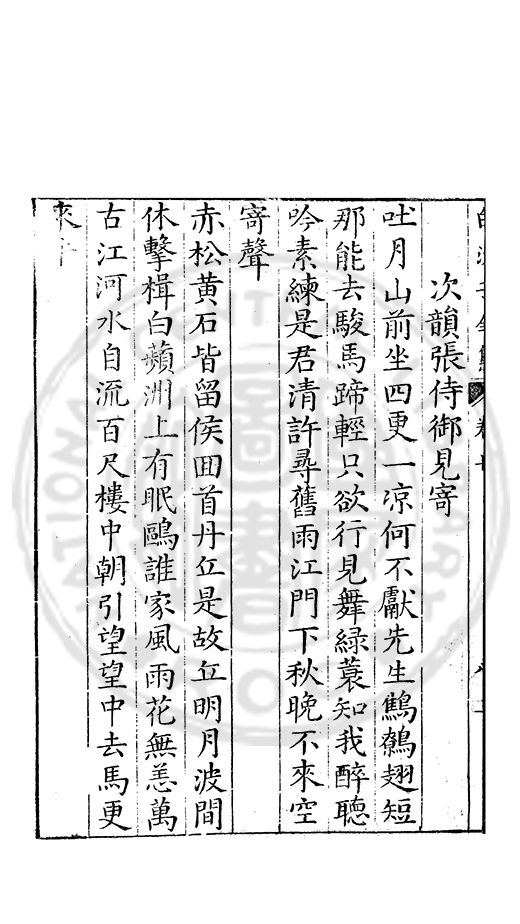 次韻張侍御見寄
吐月山前坐四更一凉何不獻先生鷦鷯翅短
那能去駿馬蹄輕只欲行見舞緑蓑知我醉聽
吟素練是君清許尋舊雨江門下秋晚不來空
寄聲
赤松黄石皆留侯囬首丹丘是故丘明月波間
休擊楫白蘋洲上有眠鷗誰家風雨花無恙萬
古江河水自流百尺樓中朝引望望中去馬更
來